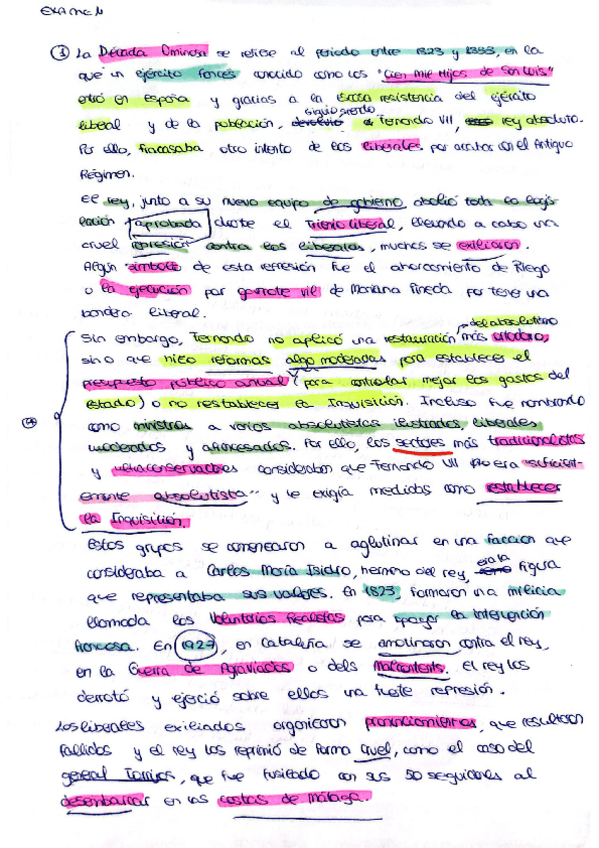 EXAMEN
① La Década Ominosa se refiere al periodo entre 1823 y 1833, en la
que un ejército francés conocido como los "Cien Mil Hijos de San Luis"
entró en España y gracias a la escasa resistencia del ejército
siguió siendo
liberal y de la población, Fernando VII, rey absoluto.
Por ello, fracasaba otro intento de los liberales por acabar con el Antiguo
Régimen.
El rey, junto a su nuevo equipo de gobierno abolió toda la legis-
lación aprobada durante el Trienio liberal, llevando a cabo una
cruel represión contra los liberales, muchos se exiliaron.
Algún símbolo de esta represión fue el ahorcamiento de Riego
o la ejecución por garrote vil de Mariana Pineda por tener una
bandera liberal.
del absolutismo
Sin embargo, Fernando no aplicó una restauración más ortodoxa,
sino que hizo reformas algo moderadas para establecer el
presupuesto público anual (para controlar mejor los gastos del
estado) o no restablecer la Inquisición. Incluso fue nombrando
como ministros a varios absolutistas ilustrados, liberales
moderados y afrancesados. Por ello, los sectores más tradicionalistas
y ultraconservadores consideraban que Fernando VII no era "suficient-
emente absolutista" y le exigía medidas como establecer
la Inquisición.
Estos grupos se comenzaron a aglutinar en una facción que
consideraba a Carlos María Isidro, hermano del rey, era la figura
que representaba sus valores. En 1823, formaron una milicia
llamada los Voluntarios Realistas para apoyar la intervención
francesa. En 1827, en Cataluña se amotinaron contra el rey,
en la Guerra de Agraviados o dels Malcontents. El rey los
derrotó y ejerció sobre ellos una fuerte represión.
Los liberales exiliados organizaron pronunciamientos, que resultaron
fallidos y el rey los reprimió de forma cruel, como el caso del
general Torrijos, que fue fusilado con sus 50 seguidores al
desembarcar en las costas de Málaga.